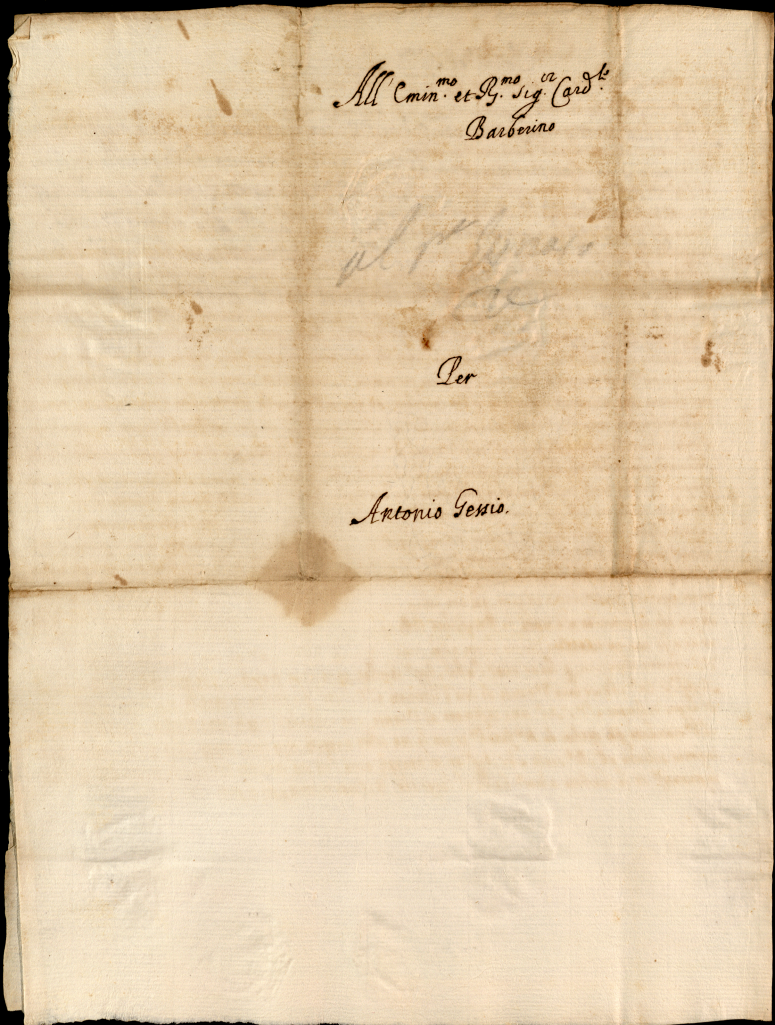 All' Emin.mo et R.mo Sig.r Card.le
Barberino
al
Per
Antonio Gessio.